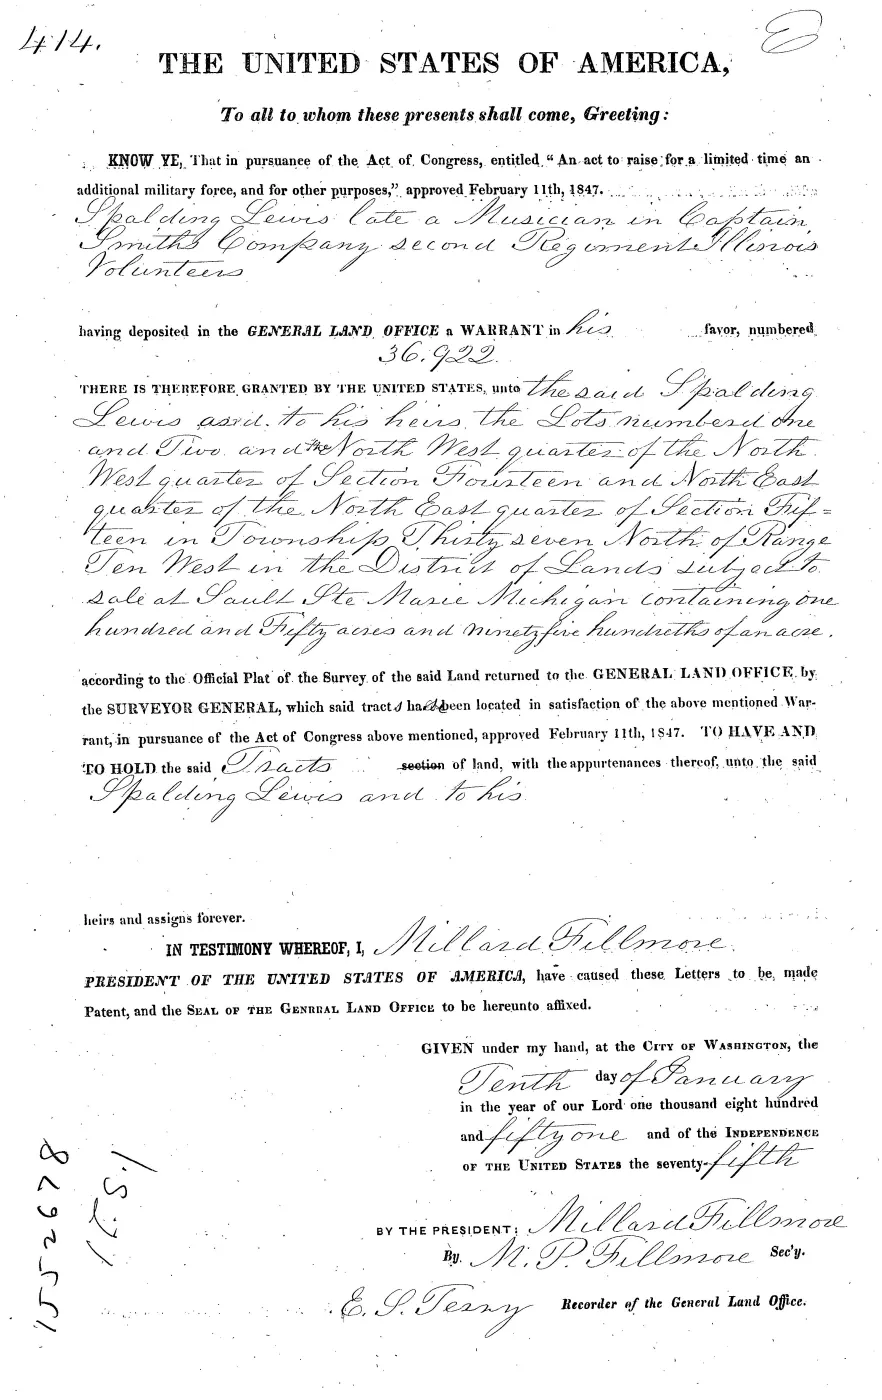 414.
THE UNITED STATES OF AMERICA,
To all to whom these presents shall come, Greeting:
KNOW YE, That in pursuance of the Act of Congress, entitled "An act to raise for a limited time an
additional military force, and for other purposes," approved February 11th, 1847.
Spalding Lewis late a Musician in Captain
Smith's Company second Regiment Illinois
Volunteers
having deposited in the GENERAL LAND OFFICE a WARRANT in his favor, numbered
36.922
THERE IS THEREFORE GRANTED BY THE UNITED STATES, unto the said Spalding
Lewis and to his heirs the Lots numbered one
and Two and the North West quarter of the North
West quarter of Section Fourteen and North East
quarter of the North East quarter of Section Fif=
teen in Township Thirty seven North of Range
Ten West in the District of Lands subject to
sale at Sault Ste Marie Michigan containing one
hundred and Fifty acres and ninety five hundreths of an acre.
according to the Official Plat of the Survey of the said Land returned to the GENERAL LAND OFFICE by
the SURVEYOR GENERAL, which said tracts been located in satisfaction of the above mentioned War-
rant, in pursuance of the Act of Congress above mentioned, approved February 11th, 1847. TO HAVE AND
TO HOLD the said Tracts section of land, with the appurtenances thereof, unto the said
Spalding Lewis and to his
heirs and assigns forever.
IN TESTIMONY WHEREOF, I, Millard Fillmore
PRESIDENT OF THE UNITED STATES OF AMERICA, have caused these Letters to be made
Patent, and the SEAL OF THE GENERAL LAND OFFICE to be hereunto affixed.
GIVEN under my hand, at the CITY OF WASHINGTON, the
Tenth day of January
in the year of our Lord one thousand eight hundred
and fifty one and of the INDEPENDENCE
OF THE UNITED STATES the seventy-fifth
BY THE PRESIDENT: Millard Fillmore
By M. P. Fillmore Sec'y.
E. S. Terry Recorder of the General Land Office.
1552678